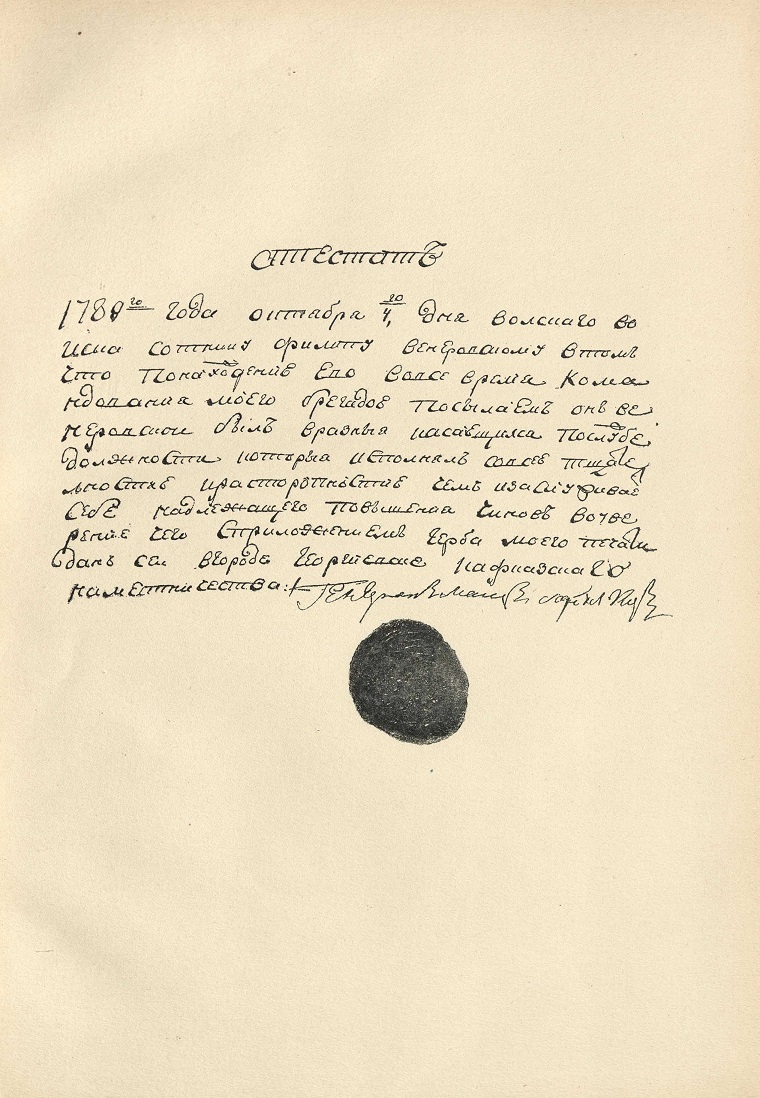 аттестатъ
178 го года октября 4 го дня волскаго во
иска сотнику филипу венеровскому втомъ
что понахождение ево вовсе время кома
ндования моего брегадою посылаемъ онъ ве
неровскои былъ вразныя касающияся послужбе
должности которыя исполнялъ совсею тщател
ностию ирасторопностию чемъ изаслуживае
себе надлежащего повышения чиновъ воуве
рение чего сприложениемъ герба моего печати
данъ сеи вгороде георгиевске кафказскаго
наместничества: